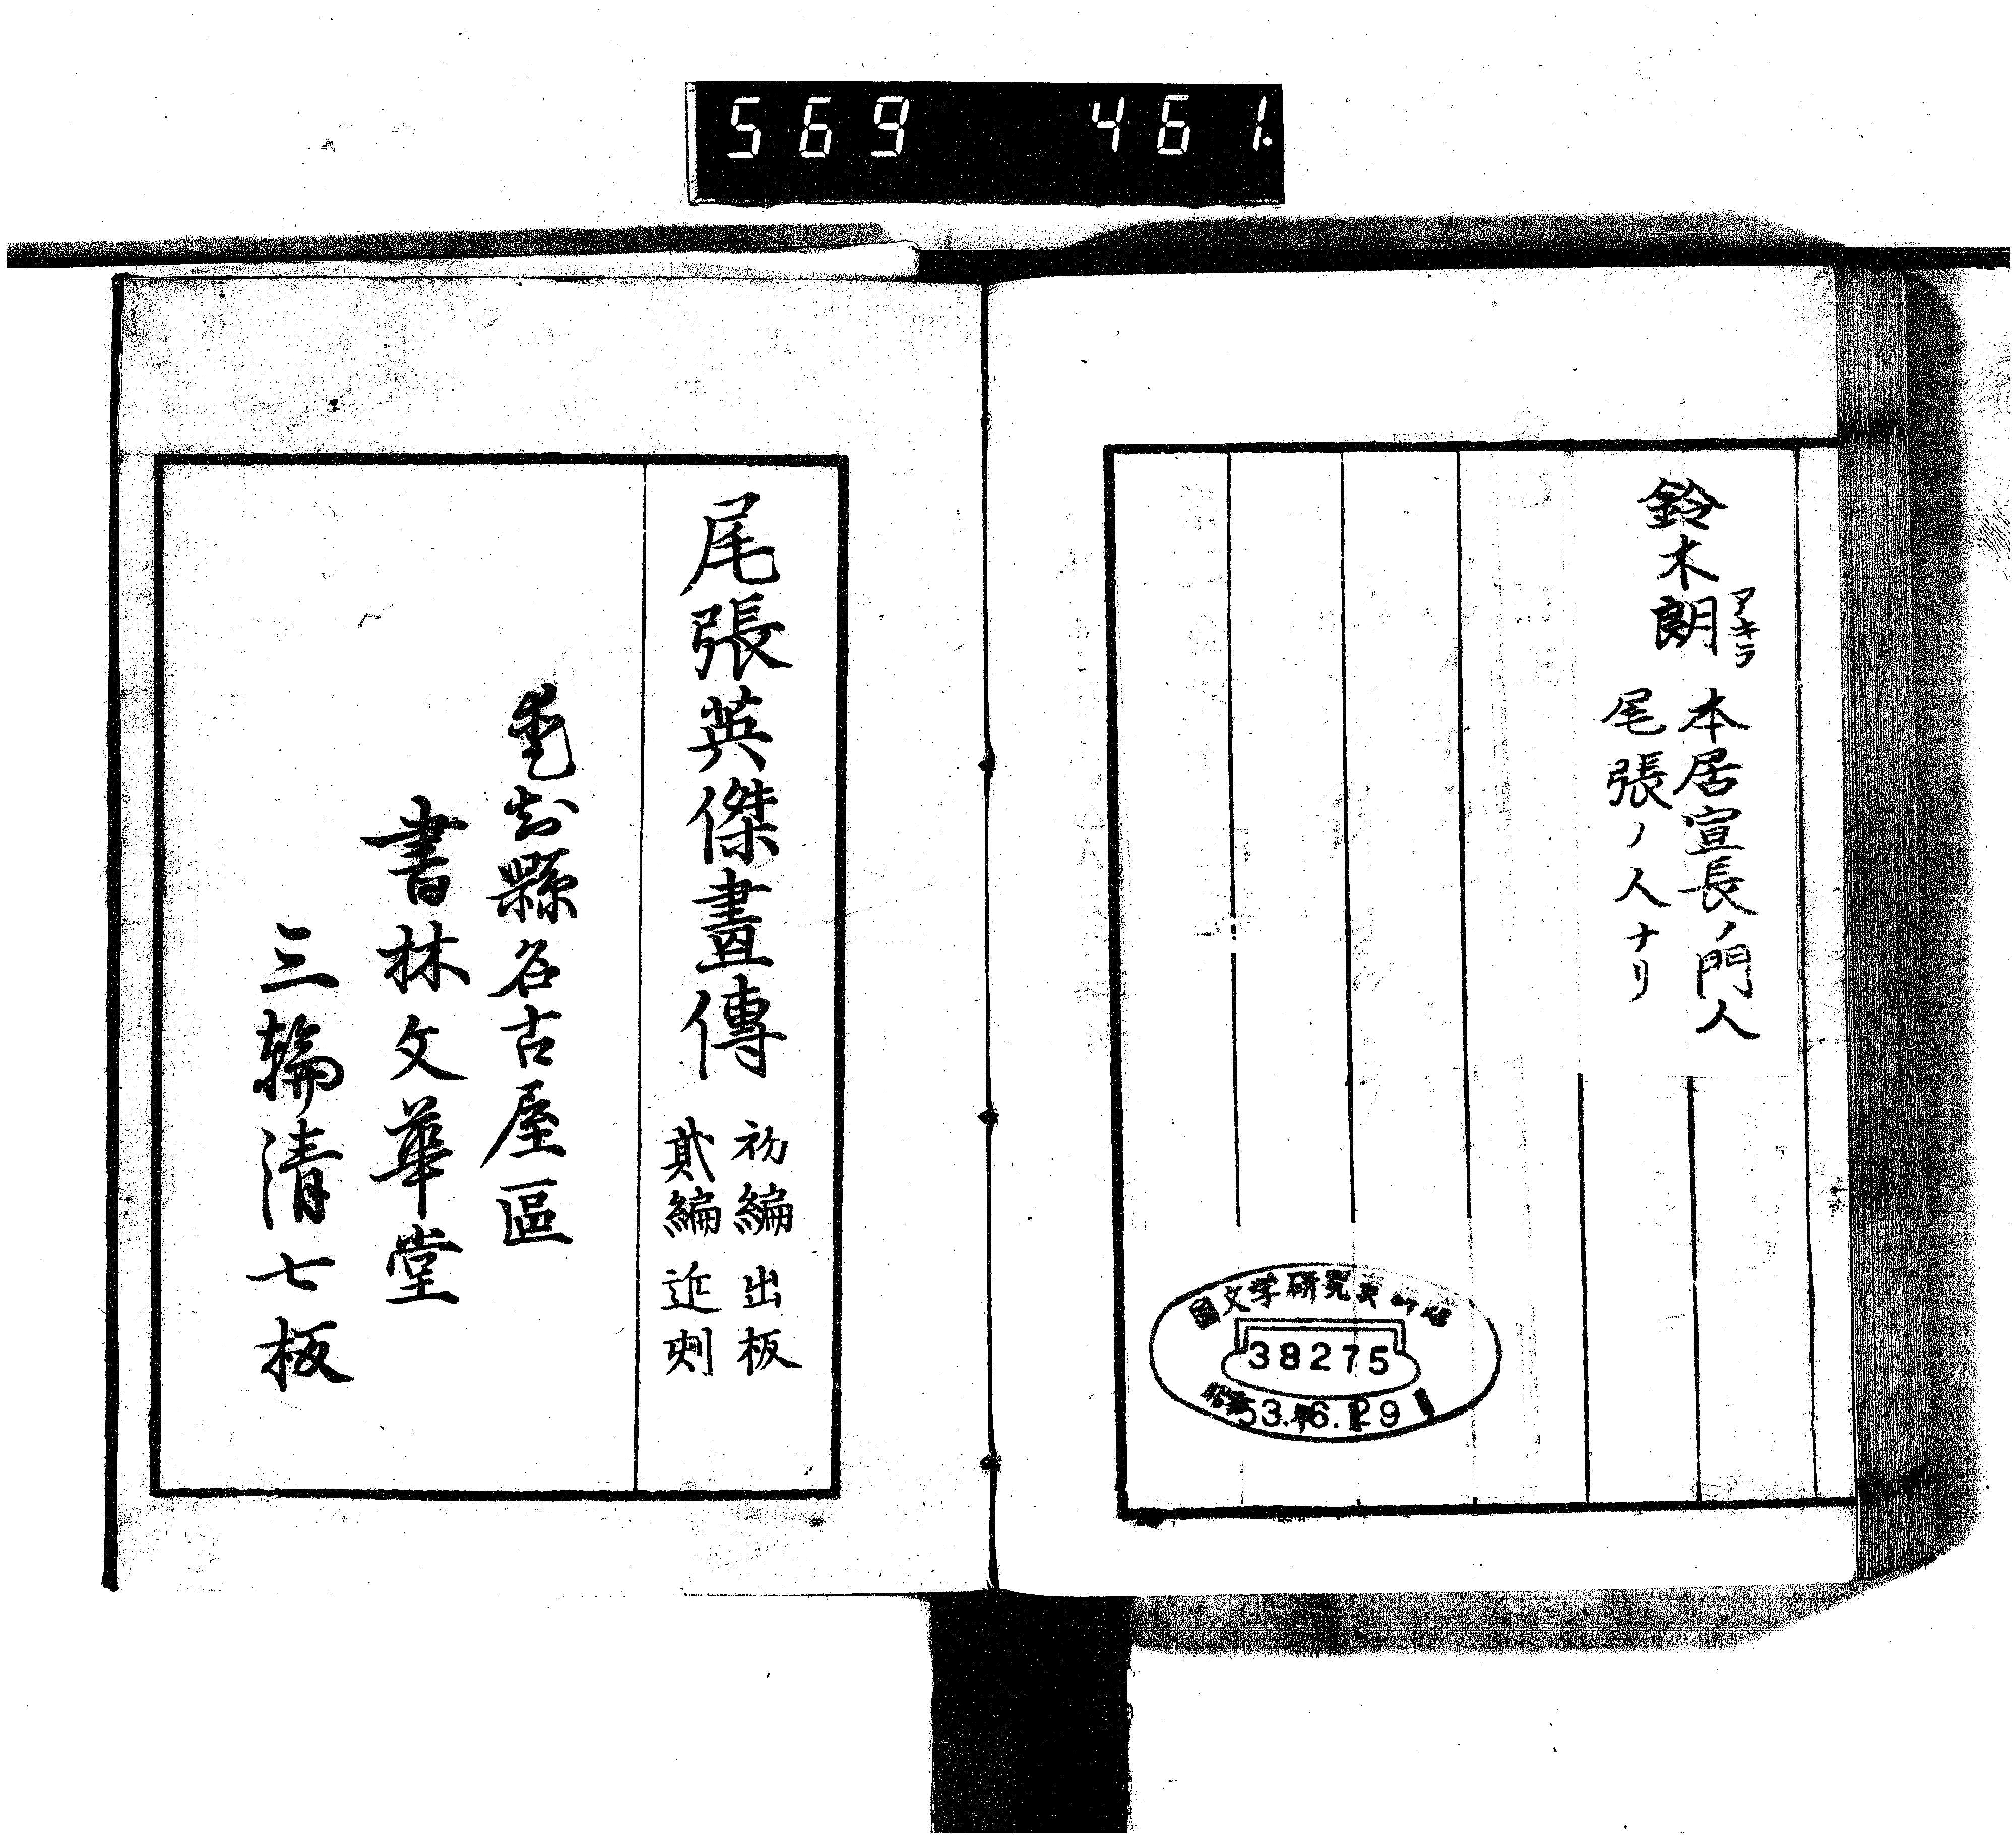 569 461.
鈴木朗
アキラ
本居宣長ノ門人
尾張ノ人ナリ
38275
53.6.29
尾張英傑畫傳
初編出板
貳編近刻
愛知縣名古屋區
書林文華堂
三輪清七板